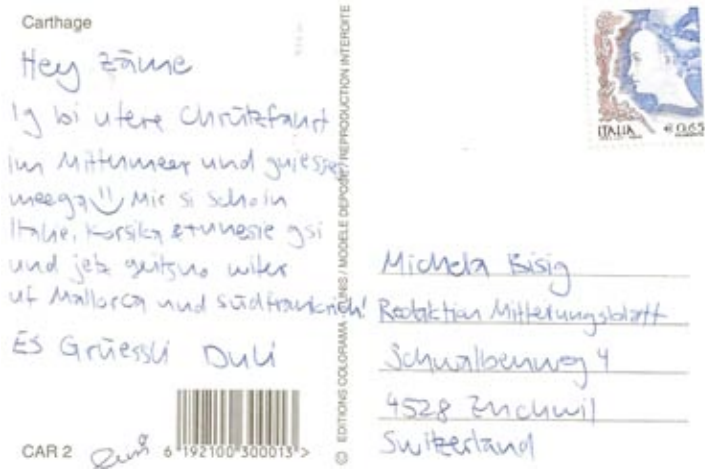 Carthage
Hey zäme
Ig bi ufere Chrützfahrt
im Mittumeer und gniesse
meega!! Mir si scho in
Italie, Korsika & Tunesie gsi
und jetz geitsno witer
uf Mallorca und Südfrankrich!
ES Grüessli Duli
CAR 2
6 192100 300013 >
© EDITIONS COLORAMA - TUNIS / MODELE DEPOSE / REPRODUCTION INTERDITE
ITALIA € 0,65
Michela Bisig
Redaktion Mitteilungsblatt
Schwalbenweg 4
4528 Zuchwil
Switzerland